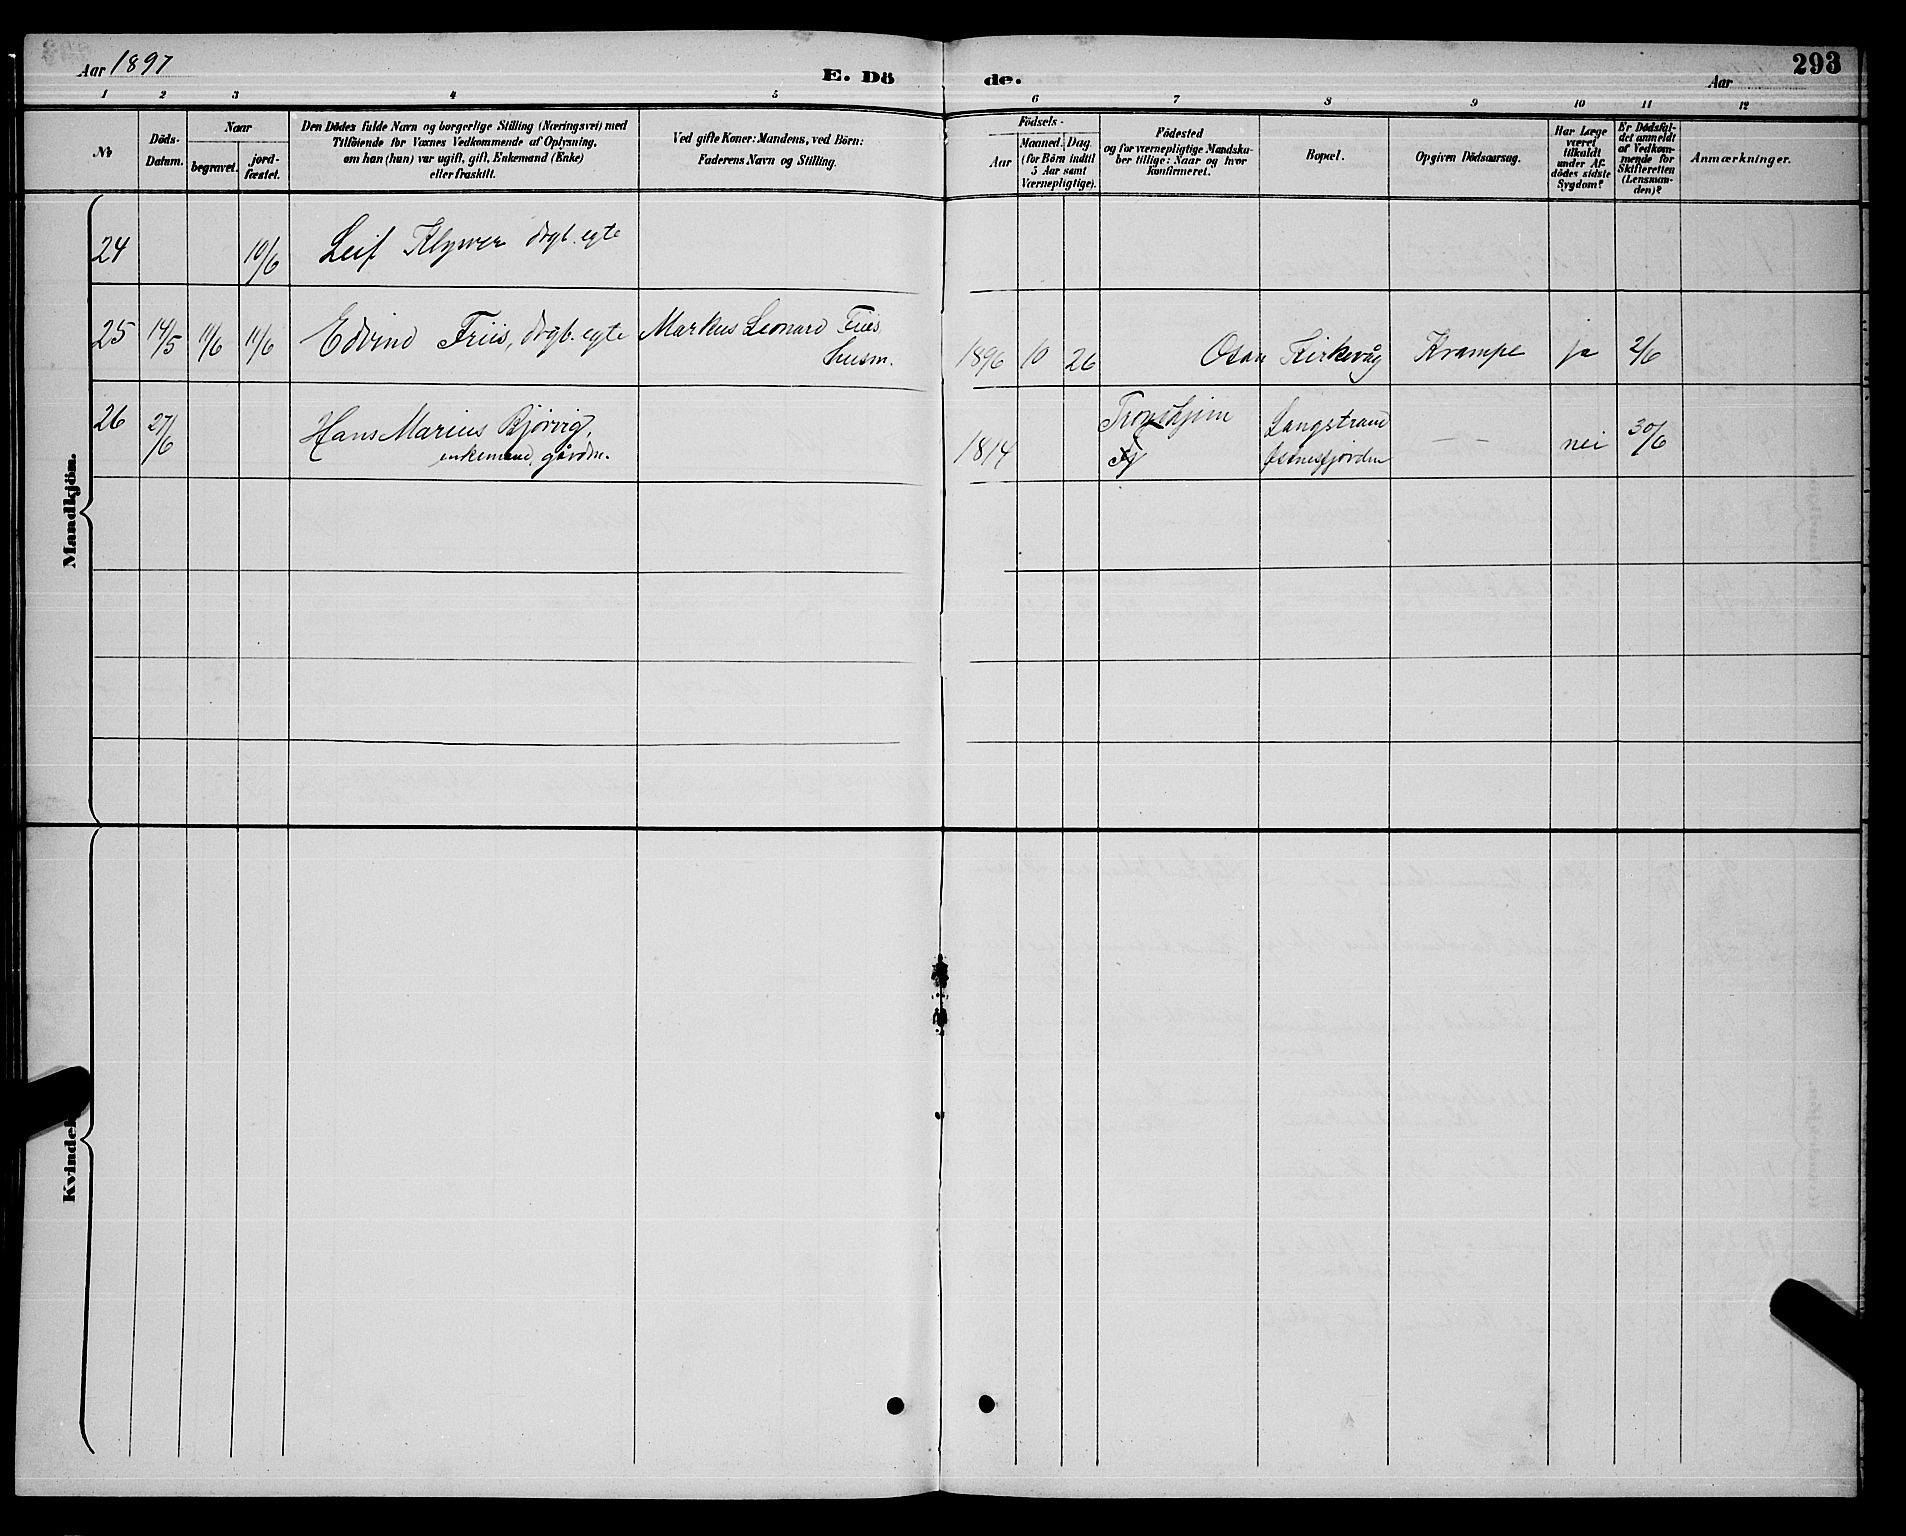 Aar 1897
E. Dö
de.
Aar
293
1 2 3 4 5 6 7 8 9 10 11 12
Nr
Döds-
Datum.
Naar
begravet.
jord-
fæstet.
Den Dödes fulde Navn og borgerlige Stilling (Næringsvei) med
Tilföiende for Voxnes Vedkommende af Oplysning,
om han (hun) var ugift, gift, Enkemand (Enke)
eller fraskilt.
Ved gifte Koner: Mandens, ved Börn:
Faderens Navn og Stilling.
Födsels-
Aar
Maaned.
Dag.
(for Börn indtil
5 Aar samt
Værnepligtige).
Födested
og for værnepligtige Mandska-
ber tillige: Naar og hvor
konfirmeret.
Bopæl.
Opgiven Dödsaarsag.
Har Læge
været
tilkaldt
under Af-
dödes sidste
Sygdom?
Er Dödsfal-
det anmeldt
af Vedkom-
mende for
Skifteretten
(Lensman-
den)?
Anmærkninger.
Mandkjön.
24 10/6 Leif Klyver drgb. egte
25 14/5 11/6 11/6 Edvind Friis, drgb. egte Markus Leonard Friis
husm.
1896 10 26 Kirkevåg Krampe ja 2/6
26 27/6 Hans Marius Bjørvig,
enkemand, gårdm.
1814 Trondhjem Langstrand
— — nei 30/6
Kvindek